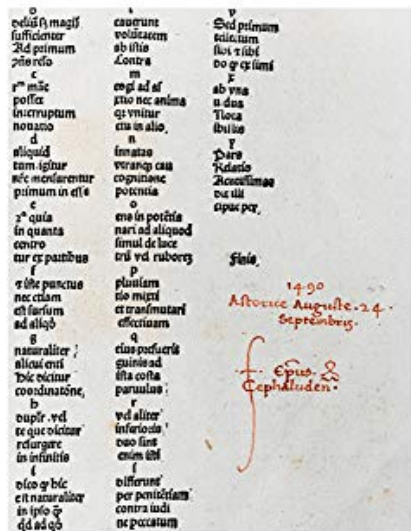 b
velius q magis
sufficienter
Ad primum
pñs reso
c
rᵐ mãe
posset
interruptum
nouatio
d
aliquid
tum igitur
nec mensarentur
primum in esse
e
2ª quia
in quanta
centro
tur ex partibus
f
iste punctus
nec etiam
est sursum
ad aliqð
g
naturaliter
alicui enti
hic dicitur
coordinatõne,
h
duplr . vel
te que dicitur
resurgere
in infinitis
i
dico q hic
est naturaliter
in ipso
qd ad qð
l
cauerunt
volũtatem
ab istis
Contra
m
cogi ad
ctio nec anima
vnitur
ctu in alio,
n
innatas
cau
cognitione
potentia
o
ens in potẽtia
nari ad aliquod
simul de luce
vel rubore
p
pluuiam
tio mixti
et transmutari
effectiuam
q
eius presueris
guinis ad
ista costa
paruulus
r
vel aliter
inferiocis
duo sint
enim
s
differunt
per penitẽtiam
contra iudi
ne peccatum
v
Sed primum
tellectum
sibi
do
x
ab vna
u dua
Noca
ibilis
y
Dare
Relatio
die illi
cipue per,
Finis,
1490
Astorice Auguste · 24 ·
Septembris ·
Epus
Cephaluden ·